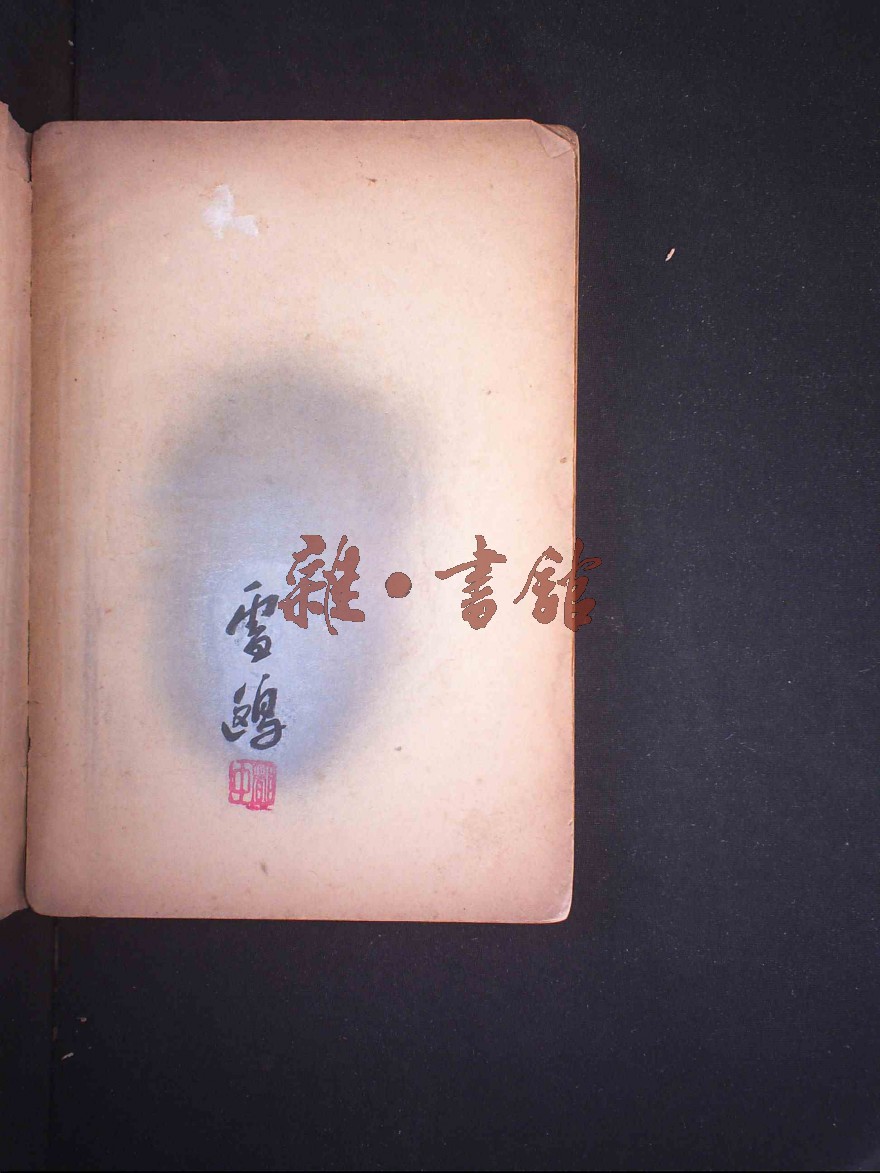 雜·書館
雪鷗